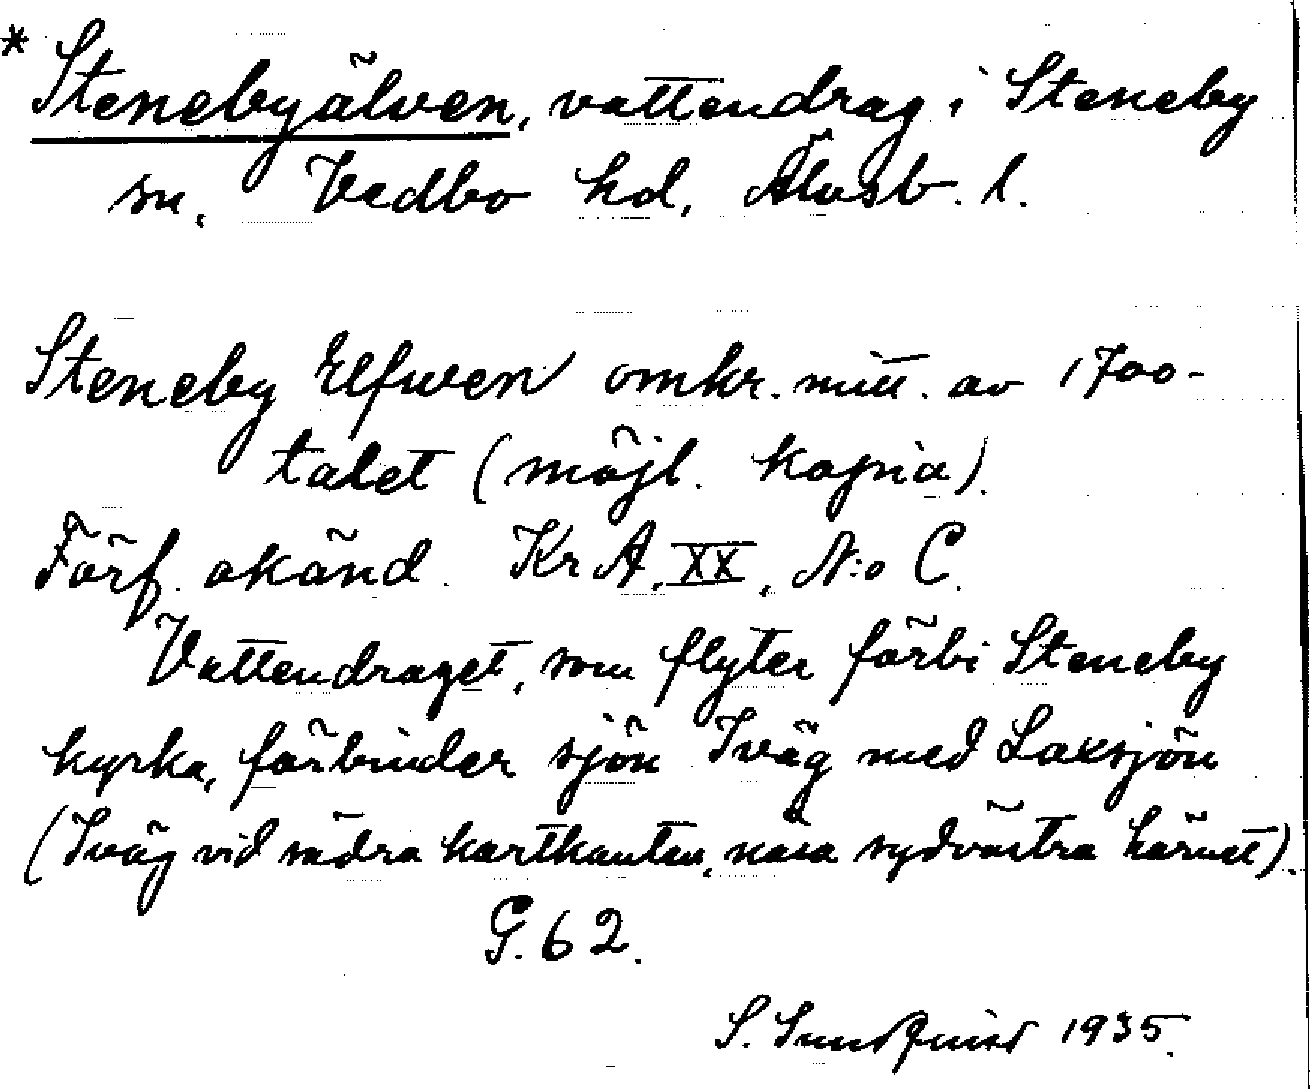 * Stenebyälven, vattendrag i Steneby
sn. Vedbo hd, Älvsb. l.
Steneby Elfwen omkr. mitt. av 1700-
talet (möjl. kopia).
Förf. okänd. KrA, XX, N:o C.
Vattendraget, som flyter förbi Steneby
kyrka, förbinder sjön Iväg med Laxsjön
(Iväg vid södra kartkanten, nära sydvästra hörnet).
G. 62.
S. Sundquist 1935.